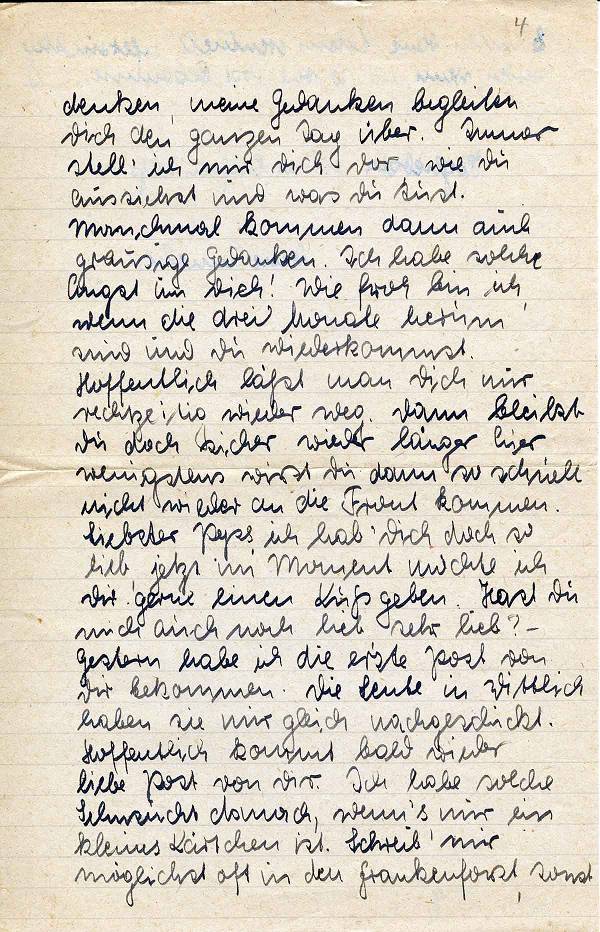 4
denken, meine Gedanken begleiten
dich den ganzen Tag über. Immer
stell' ich mir dich vor wie du
aussiehst und was du tust.
Manchmal kommen dann auch
grausige Gedanken. Ich habe solche
Angst um dich! Wie froh bin ich,
wenn die drei Monate herum
sind und du wiederkommst.
Hoffentlich läßt man dich nur
rechtzeitig wieder weg. Dann bleibst
du doch sicher wieder länger hier
wenigstens wirst du dann so schnell
nicht wieder an die Front kommen.
Liebster Peps ich hab' dich doch so
lieb jetzt im Moment möchte ich
dir gerne einen Kuß geben. Hast du
mich auch noch lieb sehr lieb? –
Gestern habe ich die erste Post von
dir bekommen. Die Leute in Wittlich
haben sie mir gleich nachgeschickt.
Hoffentlich kommt bald wieder
liebe Post von dir. Ich habe solche
Sehnsucht danach, wenn's nur ein
kleines Kärtchen ist. Schreib' mir
möglichst oft in den Frankenforst, sonst